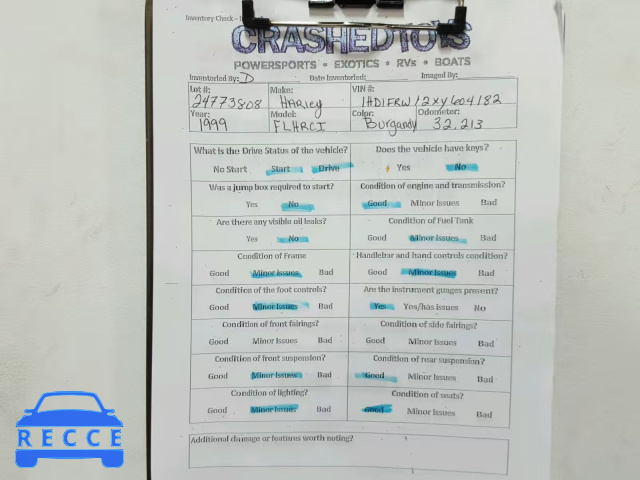 Inventory Check - I
CRASHEDTOYS
POWERSPORTS • EXOTICS • RVs • BOATS
Inventoried By: D Date Inventoried: Imaged By:
Lot #: Make: VIN #:
24773808 HARley 1HD1FRW12XY604182
Year: Model: Color: Odometer:
1999 FLHRCI Burgandy 32,213
What is the Drive Status of the vehicle? Does the vehicle have keys?
No Start Start Drive Yes No
Was a jump box required to start? Condition of engine and transmission?
Yes No Good Minor Issues Bad
Are there any visible oil leaks? Condition of Fuel Tank
Yes No Good Minor Issues Bad
Condition of Frame Handlebar and hand controls condition?
Good Minor Issues Bad Good Minor Issues Bad
Condition of the foot controls? Are the instrument guages present?
Good Minor Issues Bad Yes Yes/has issues No
Condition of front fairings? Condition of side fairings?
Good Minor Issues Bad Good Minor Issues Bad
Condition of front suspension? Condition of rear suspension?
Good Minor Issues Bad Good Minor Issues Bad
Condition of lighting? Condition of seats?
Good Minor Issues Bad Good Minor Issues Bad
Additional damage or features worth noting?
RECCE